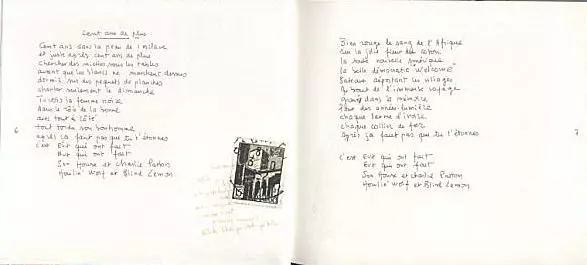 Cent ans de plus
Cent ans dans la peau de l'esclave
et juste après cent ans de plus
Chercher des miettes sous les tables
avant que les blancs ne marchent dessus
dormir sur des paquets de planches
chanter seulement le dimanche
la femme noire
dans le rôle de la bonne
avec tout à côté
tout tordu son bonhomme
après ça faut pas que tu t'étonnes
c'est Eux qui ont fait
Eux qui ont fait
Son House et Charlie Patton
Howlin' Wolf et Blind Lemon
6
Bien rouge le sang de l'Afrique
sur la jolie fleur de coton
la toute nouvelle Amérique
la belle démocratie "welcome"
Bateaux déportant les villages
Au bout de l'immense voyage
Gravé dans la mémoire
Pour des années-lumière
chaque larme d'ivoire
chaque collier de fer
après ça faut pas que tu t'étonnes
c'est Eux qui ont fait
Eux qui ont fait
Son House et Charlie Patton
Howlin' Wolf et Blind Lemon
7